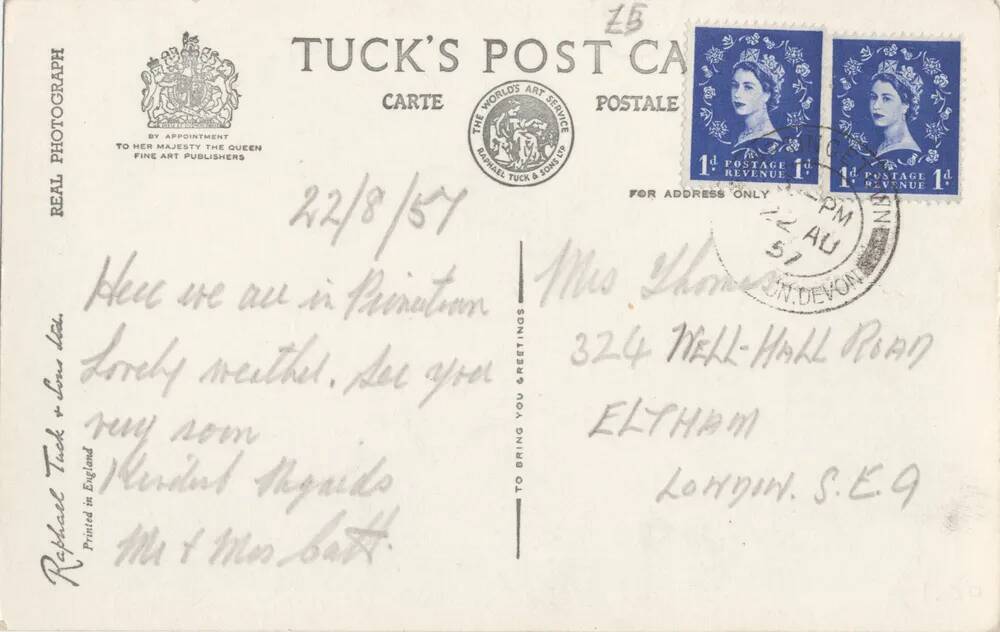 ZB
TUCK'S POST CA
CARTE POSTALE
THE WORLD'S ART SERVICE
RAPHAEL TUCK & SONS LTD
BY APPOINTMENT
TO HER MAJESTY THE QUEEN
FINE ART PUBLISHERS
REAL PHOTOGRAPH
Raphael Tuck & Sons Ltd.
Printed in England
1d POSTAGE REVENUE 1d
1d POSTAGE REVENUE 1d
PM
22 AU
57
N. DEVON
FOR ADDRESS ONLY
22/8/57
Here we are in Princetown
Lovely weather. See you
very soon
Kindest Regards
Mr & Mrs Catt.
TO BRING YOU GREETINGS
Mrs Thomas
324 WELL-HALL ROAD
ELTHAM
LONDON. S.E.9
1.50